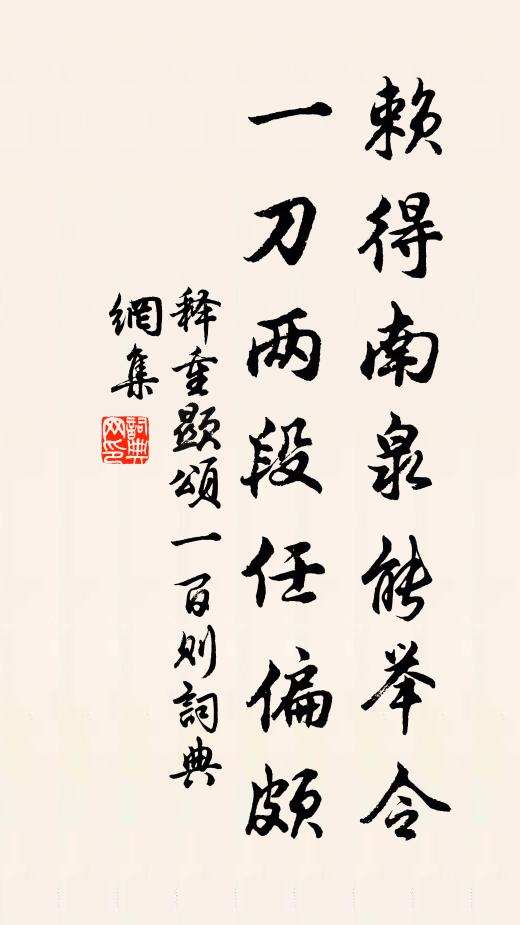 赖得南泉能举令
一刀两段任偏颇
释重显颂一百则詞典
網集
詞典
网印